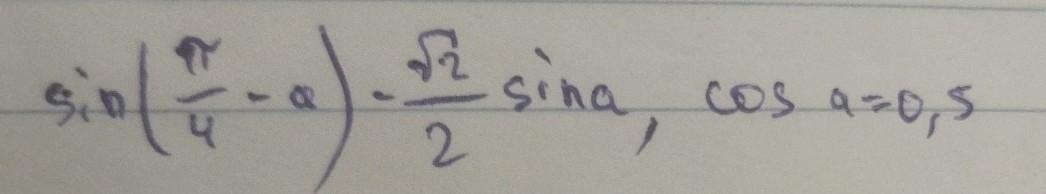 sin(π/4 - a) - √2/2 sina, cos a=0,5